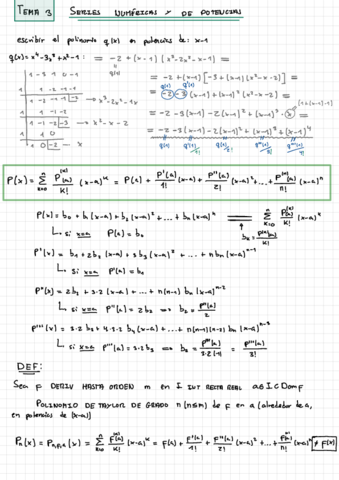 TEMA 3 SERIES NUMÉRICAS Y DE POTENCIAS
escribir el polinomio q(x) en potencias de: x-1
q(x) = x⁴-3x³+x²-1 = -2+(x-1)(x³-2x²-x-1)
q(1)
1 -3 1 0 -1
1 1 -2 -1 -1
1 -2 -1 -1 -2 → x³-2x²-1x
= -2+(x-1)[-3+(x-1)(x²-x-2)] =
q(1) q'(1)
1 1 -1 -2
1 -1 -2 -3 → x²-x-2
= -2 -3(x-1)+(x-1)²(x²-x-2) =
1 1 0
1 0 -2 → x
= -2-3(x-1)-2(x-1)²+(x-1)³·x =
(1+(x-1))
= -2-3(x-1)-2(x-1)²+(x-1)³+(x-1)⁴
P(x) = Σ P^(k)(a)/k! (x-a)^k = P(a) + P'(a)/1! (x-a) + P''(a)/2! (x-a)² + ... + P^(n)(a)/n! (x-a)^n
P(x) = b₀ + b₁(x-a) + b₂(x-a)² + ... + bₙ(x-a)^n = Σ P^(k)(a)/k! (x-a)^k
↳ si x=a P(a) = b₀ bₖ = P^(k)(a)/k!
P'(x) = b₁ + 2b₂(x-a) + 3b₃(x-a)² + ... + n bₙ(x-a)^n-1
↳ si x=a P'(a) = b₁
P''(x) = 2b₂ + 3·2(x-a) + ... + n(n-1) bₙ(x-a)^n-2
↳ si x=a P''(a) = 2b₂ ⇒ b₂ = P''(a)/2
P'''(x) = 3·2 b₃ + 4·3·2 b₄(x-a) + ... + n(n-1)(n-2) bₙ(x-a)^n-3
↳ si x=a P'''(a) = 3·2b₃ ⇒ b₃ = P'''(a)/3·2(·1) = P'''(a)/3!
DEF:
Sea F DERIV HASTA ORDEN m en I INT RECTA REAL a∈I⊂Dom F
POLINOMIO DE TAYLOR DE GRADO n (n≤m) de F en a (alrededor de a,
en potencias de (x-a))
Pₙ(x) = Pₙ,F,a(x) = Σ F^(k)(a)/k! (x-a)^k = F(a) + F'(a)/1! (x-a) + F''(a)/2! (x-a)² + ... + F^(n)(a)/n! (x-a)^n ≠ F(x)